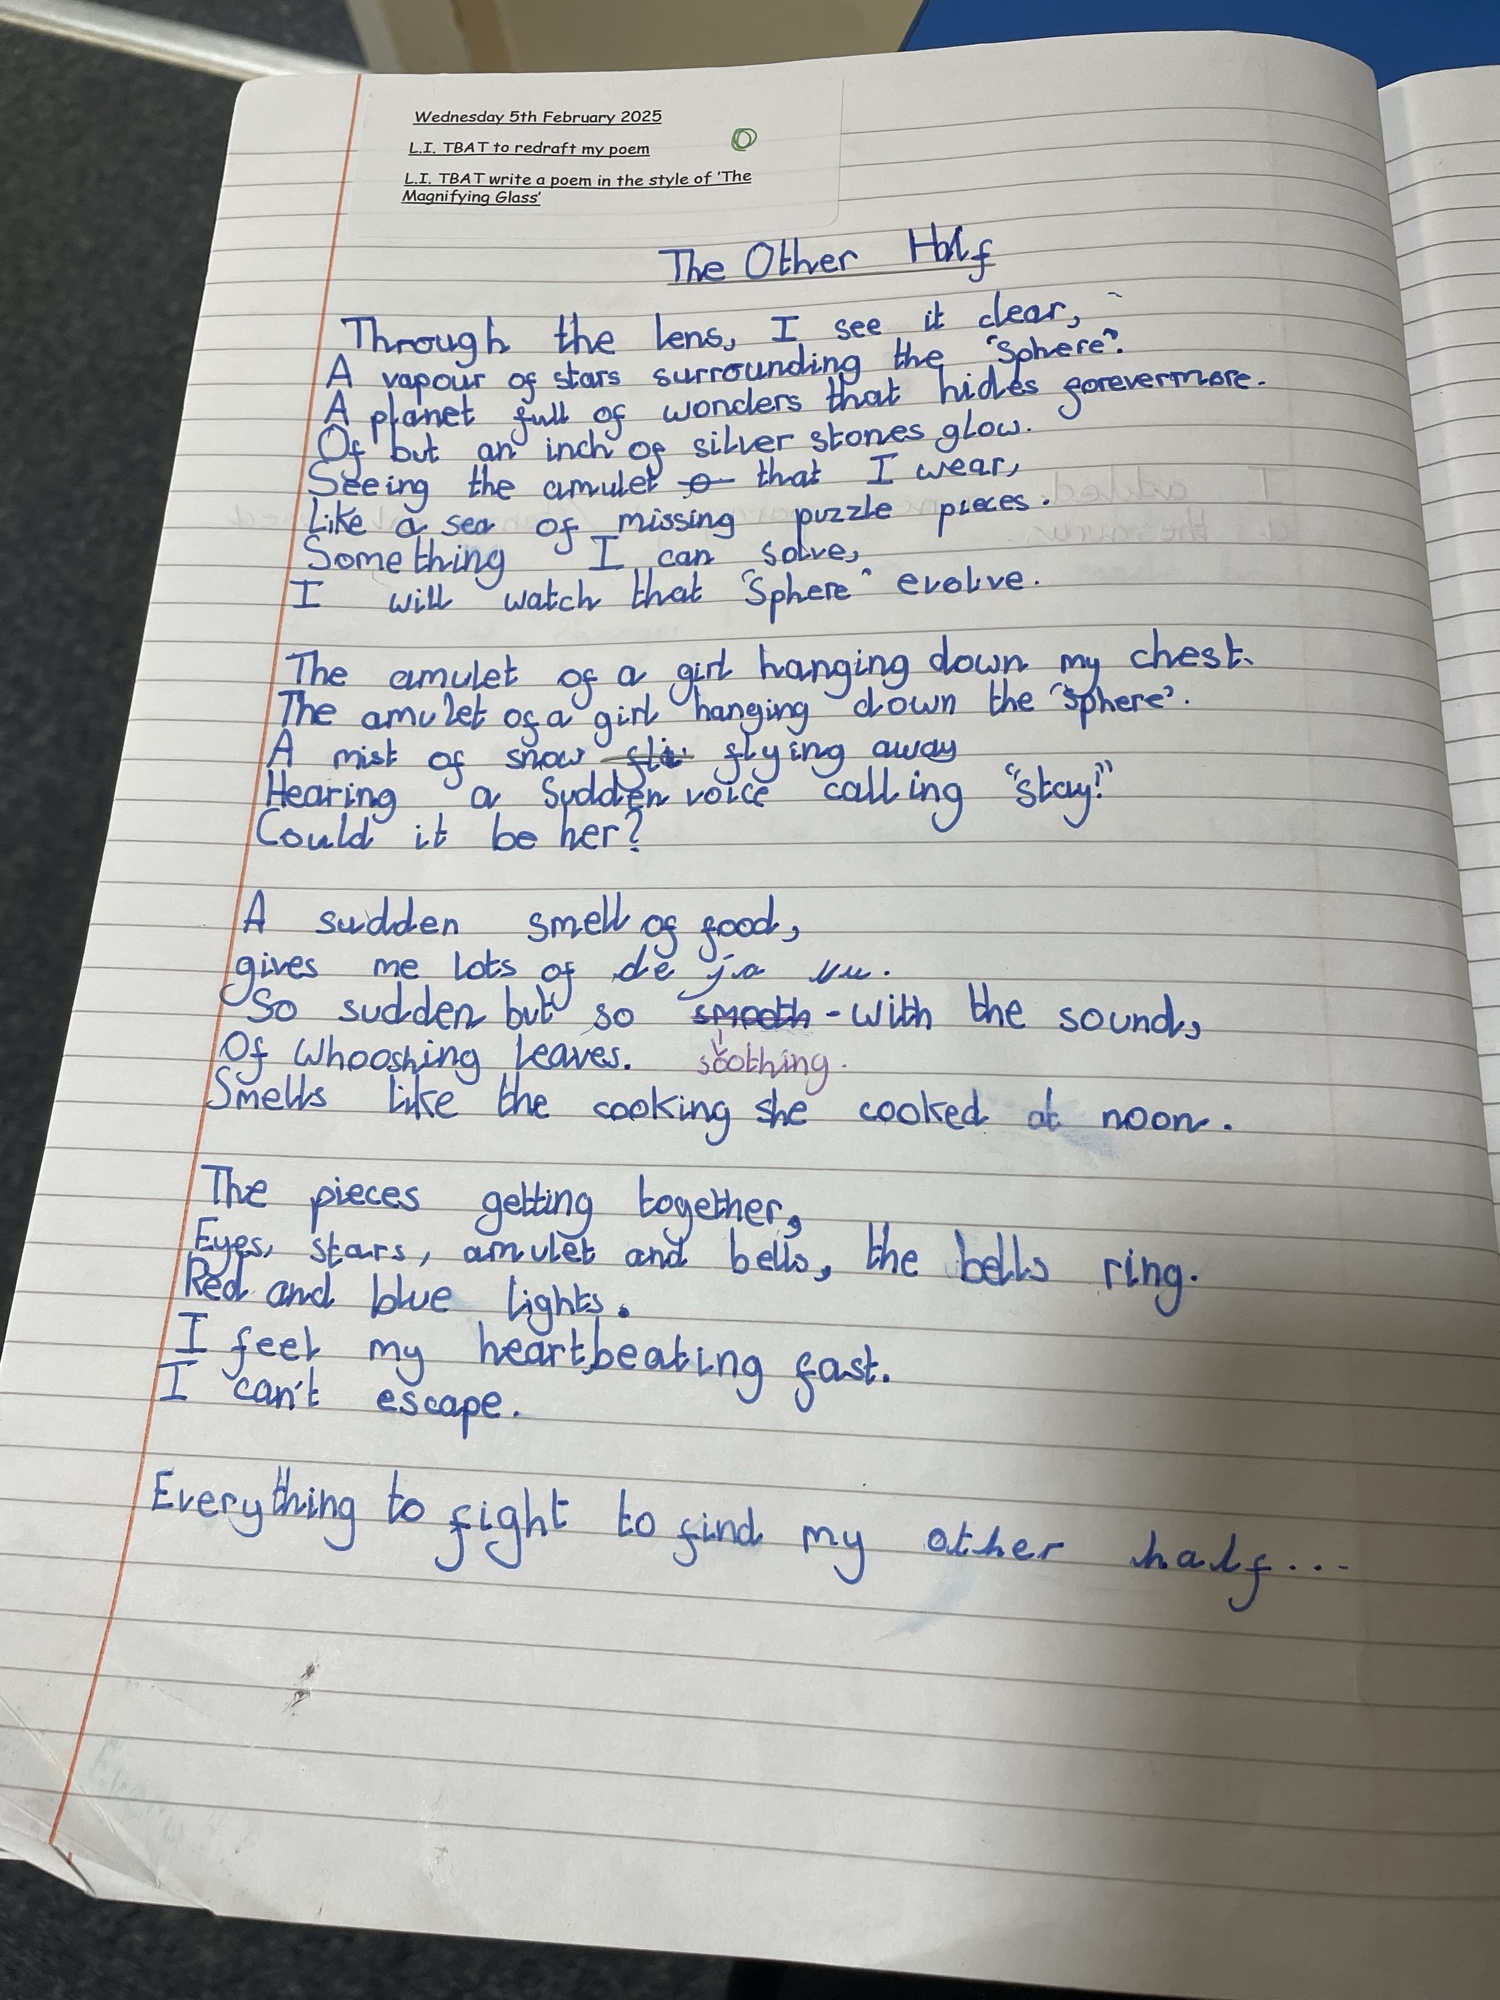 Wednesday 5th February 2025
L.I. TBAT to redraft my poem
L.I. TBAT write a poem in the style of 'The
Magnifying Glass'
The Other Half
Through the lens, I see it clear,
A vapour of stars surrounding the "Sphere".
A planet full of wonders that hides forevermore.
Of but an inch of silver stones glow.
Seeing the amulet that I wear,
Like a sea of missing puzzle pieces.
Something I can solve,
I will watch that "Sphere" evolve.
The amulet of a girl hanging down my chest.
The amulet of a girl hanging down the "Sphere".
A mist of snow flying away
Hearing a Sudden voice calling "stay!"
Could it be her?
A sudden smell of food,
gives me lots of de ja vu.
So sudden but so smooth - with the sound,
Of whooshing leaves. soothing.
Smells like the cooking she cooked at noon.
The pieces getting together,
Eyes, stars, amulet and bells, the bells ring.
Red and blue lights.
I feel my heartbeating fast.
I can't escape.
Everything to fight to find my other half...